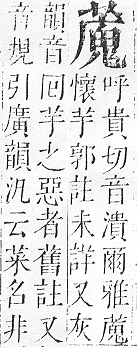 蒐
呼貴切音潰爾雅蒐
懷芋郭註未詳又灰
韻音回芋之惡者舊註又
音規引廣韻氿云菜名非